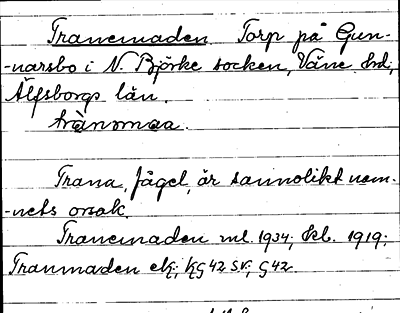 Tranemaden. Torp på Gun-
-narsbo i N. Björke socken, Väne hd,
Älfsborgs län.
trànomaa.
Trana, fågel, är sannolikt nam-
-nets orsak.
Tranemaden ml. 1934; kb. 1919;
Tranmaden ek; KG 42 sv; G 42.